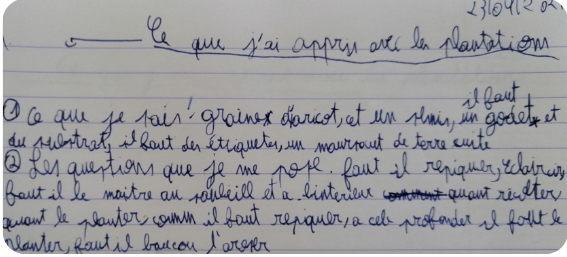 23/04/202
Ce que j'ai appris avec les plantations
① Ce que je sais : graines d'aricot, et un semis, il faut un godet et
du substrat, il faut des étiquetes, un moursaut de terre cuite
② Les questions que je me pose. faut il repiquer, éclaircir,
faut il le maitre au sauleill et a linterieur quant récolter
quant le planter, comm il faut repiquer, a cele profonder il fottt le
planter, faut il baucou l'aroser